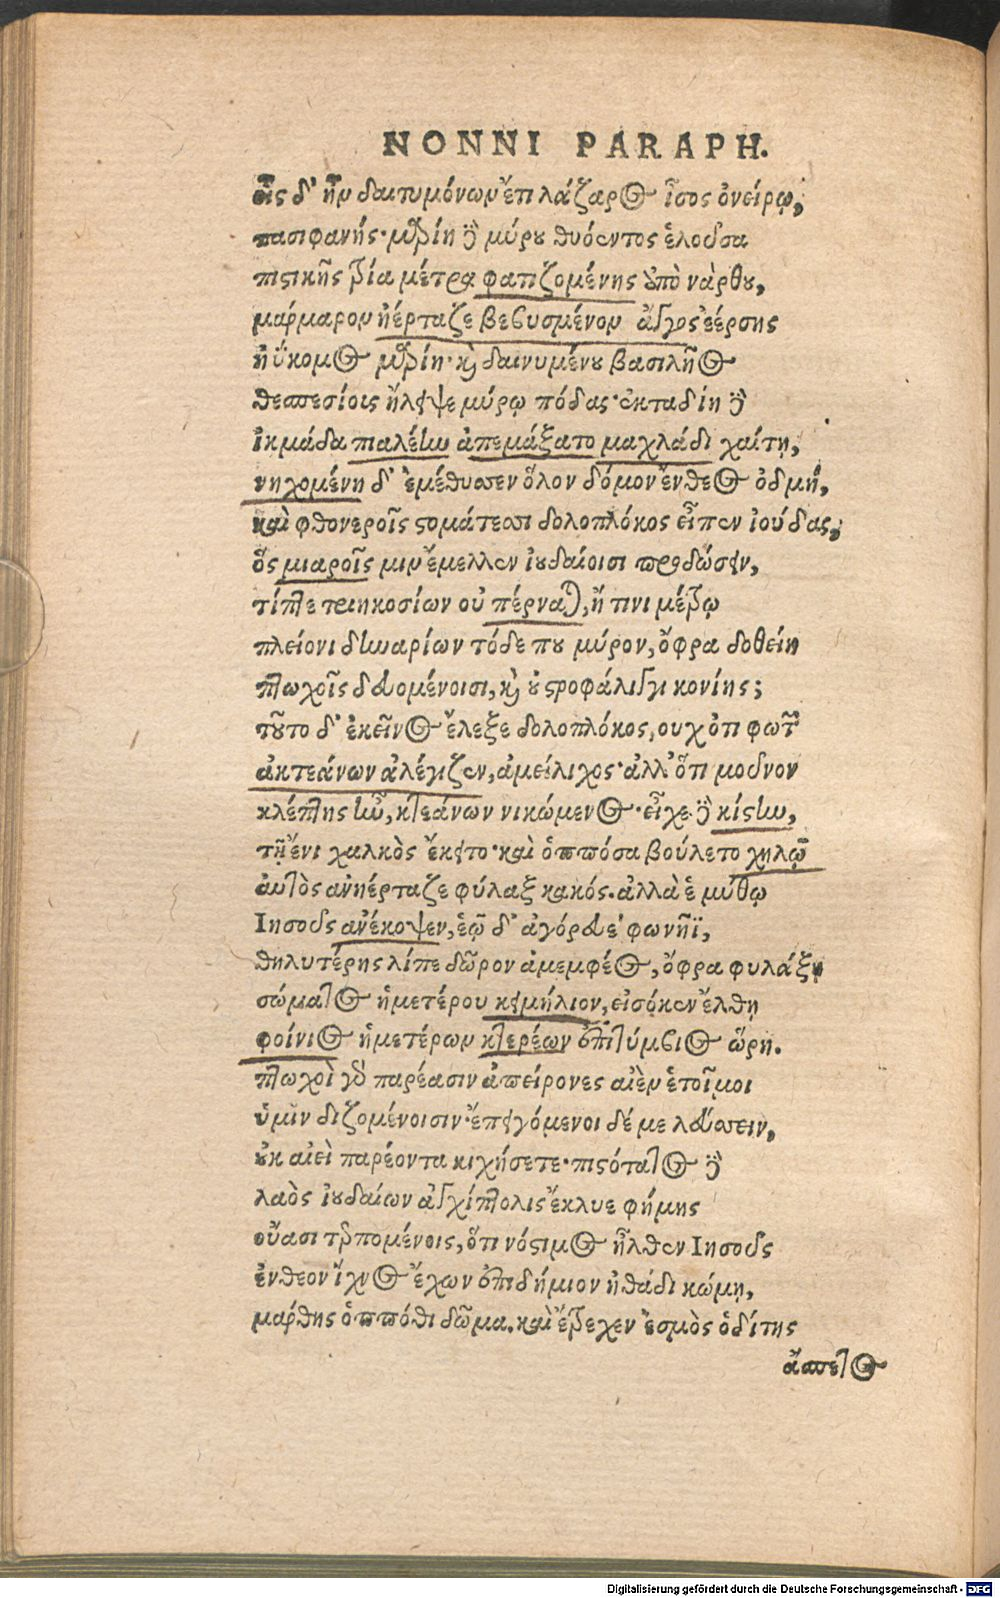 NONNI PARAPH.
εἷς δ' ἦν δαιτυμόνων ἔτι λάζαρος ἶσος ὀνείρῳ,
πασιφανής· μαρίη δὲ μύρου θυόεντος ἑλοῦσα
πιστικῆς βία μέτρα φατιζομένης ὑπὸ νάρδου,
μάρμαρον ἠέρταζε βεβυσμένον ἄγγος ἐέρσης
ἠΰκομος μαρίη· καὶ δαινυμένου βασιλῆος
θεσπεσίοις ἤλειψε μύρῳ πόδας· ἐκταδίη δὲ
ἰκμάδα πιαλέην ἀπεμάξατο μαχλάδι χαίτῃ,
νηχομένη δ' ἐμέθυσεν ὅλον δόμον ἔνθεος ὀδμή,
καὶ φθονεροῖς στομάτεσσι δολοπλόκος εἶπεν ἰούδας,
ὅς μιαροῖς μιν ἔμελλεν ἰουδαίοισι προδώσειν,
τίπτε τριηκοσίων οὐ πέρναται, ἤ τινι μέτρῳ
πλείονι δηναρίων τόδε που μύρον, ὄφρα δοθείη
πτωχοῖς δευομένοισι, καὶ ὑστροφάλιγγι κονίης;
τοῦτο δ' ἐκεῖνος ἔλεξε δολοπλόκος, ουχ ὅτι φωτῶν
ἀκτεάνων ἀλέγιζεν, ἀμείλιχος· ἀλλ' ὅτι μοῦνον
κλέπτης ἦν, κτεάνων νικώμενος· εἶχε δὲ κίστην,
τῇ ἔνι χαλκὸς ἔκειτο· καὶ ὁππόσα βούλετο χηλῷ
αὐτὸς ἀνηέρταζε φύλαξ κακός. ἀλλὰ ἑ μύθῳ
Ιησοῦς ἀνέκοψεν, ἑῷ δ' ἀγόρευε φωνῆϊ,
θηλυτέρης λίπε δῶρον ἀμεμφέος, ὄφρα φυλάξῃ
σώματος ἡμετέρου κειμήλιον, εἰσόκεν ἔλθῃ
φοίνιος ἡμετέρων κτερέων ἐπιτύμβιος ὥρη.
πτωχοὶ γὰρ παρέασιν ἀπείρονες αἰὲν ἑτοῖμοι
ὑμῖν διζομένοισιν· ἐπειγόμενοι δέ με λεύσσειν,
οὐκ αἰεὶ παρέοντα κιχήσετε· πιστότατος δὲ
λαὸς ἰουδαίων ἀγχίπτολις ἔκλυε φήμης
οὔασι τερπομένοις, ὅτι νόστιμος ἦλθεν Ιησοῦς
ἔνθεον ἴχνος ἔχων ἐπιδήμιον ἠθάδι κώμῃ,
μάρθης ὁππόθι δῶμα. καὶ ἔτρεχεν ἐσμὸς ὁδίτης
ἄσπετος
Digitalisierung gefördert durch die Deutsche Forschungsgemeinschaft - DFG